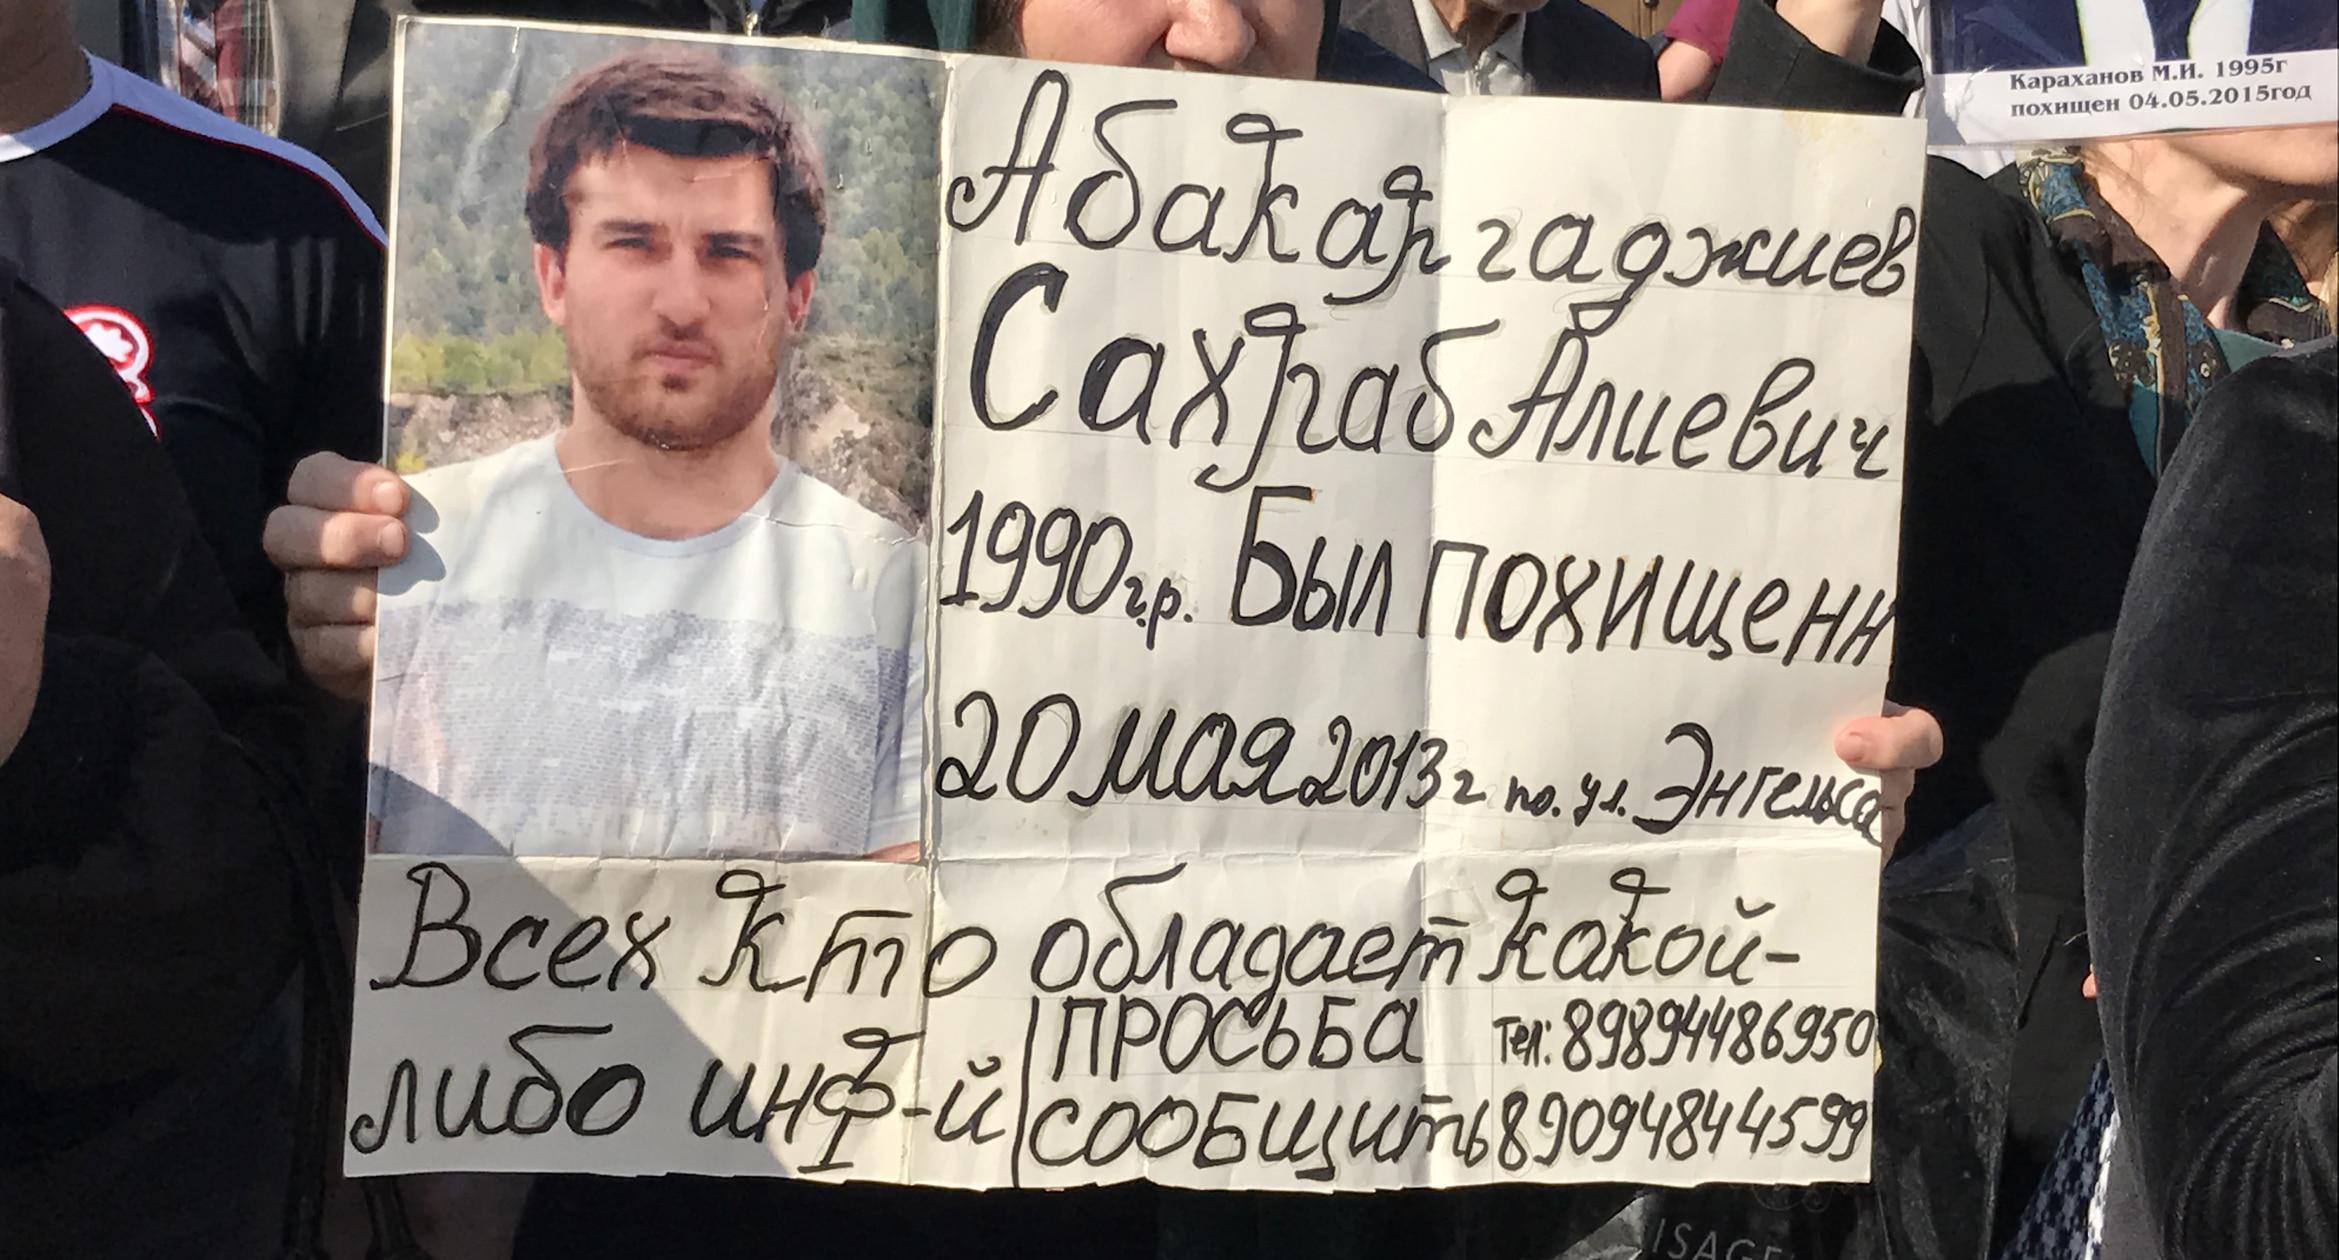 Караханов М.И. 1995г
похищен 04.05.2015год
Абакаргаджиев
Сахраб Алиевич
1990г.р. Был похищенн
20 мая 2013г по. ул. Энгельса
Всех кто обладает какой-
либо инф-й
ПРОСЬБА
СООБЩИТЬ
тел: 89894486950
89094844599
ISAGE